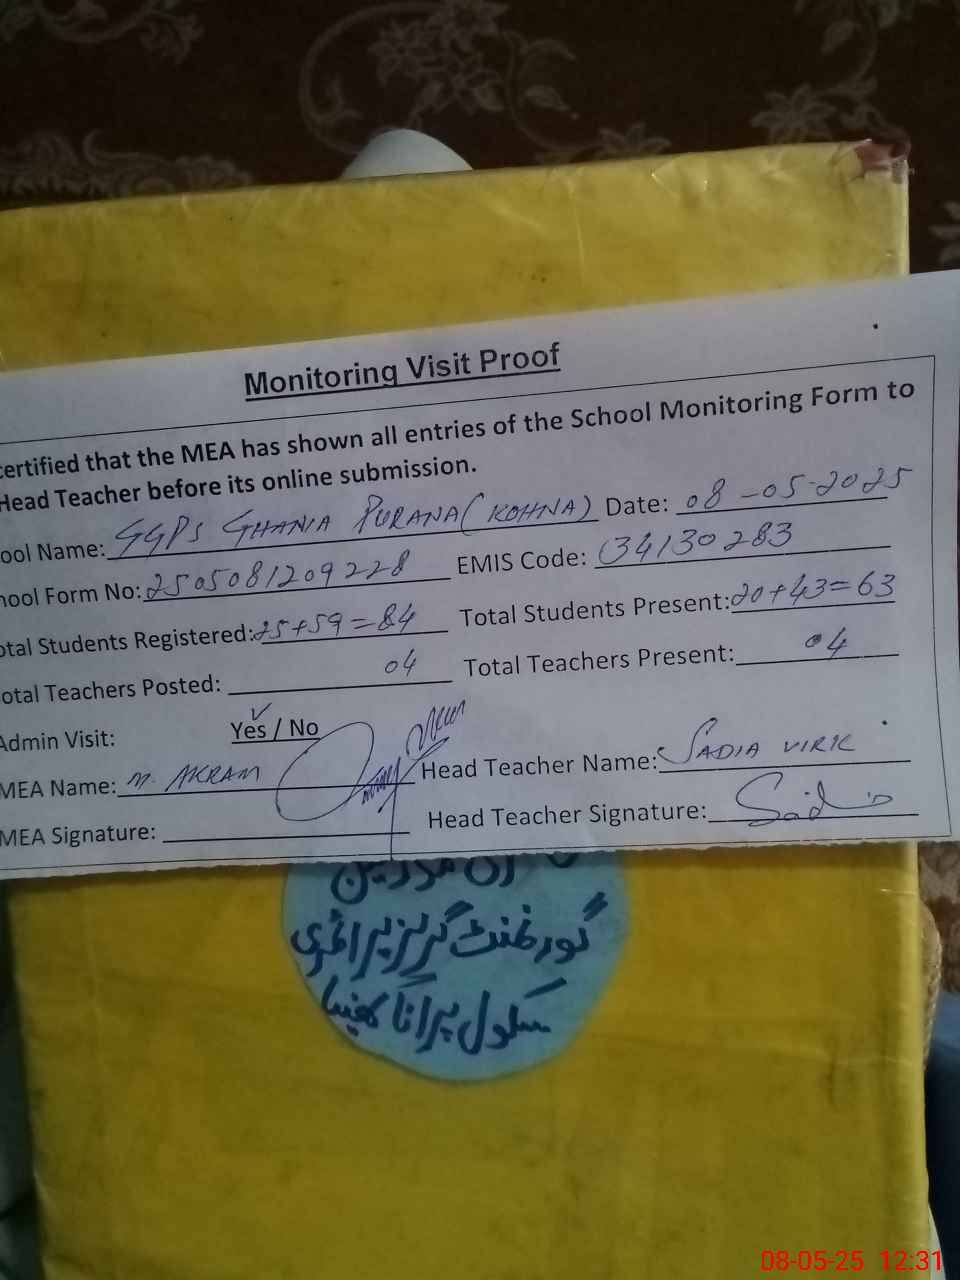 Monitoring Visit Proof
certified that the MEA has shown all entries of the School Monitoring Form to
Head Teacher before its online submission.
ool Name: GGPS GHANIA PURANA (KOHNA) Date: 08-05-2025
hool Form No: 2505081209228 EMIS Code: 34130283
otal Students Registered: 25+59=84 Total Students Present: 20+43=63
otal Teachers Posted: 04 Total Teachers Present: 04
Admin Visit: Yes / No
MEA Name: M. AKRAM Head Teacher Name: SADIA VIRK
MEA Signature: Head Teacher Signature: Sadia
گورنمنٹ گرلز پرائمری
سکول پرانا گھنیا
08-05-25 12:31